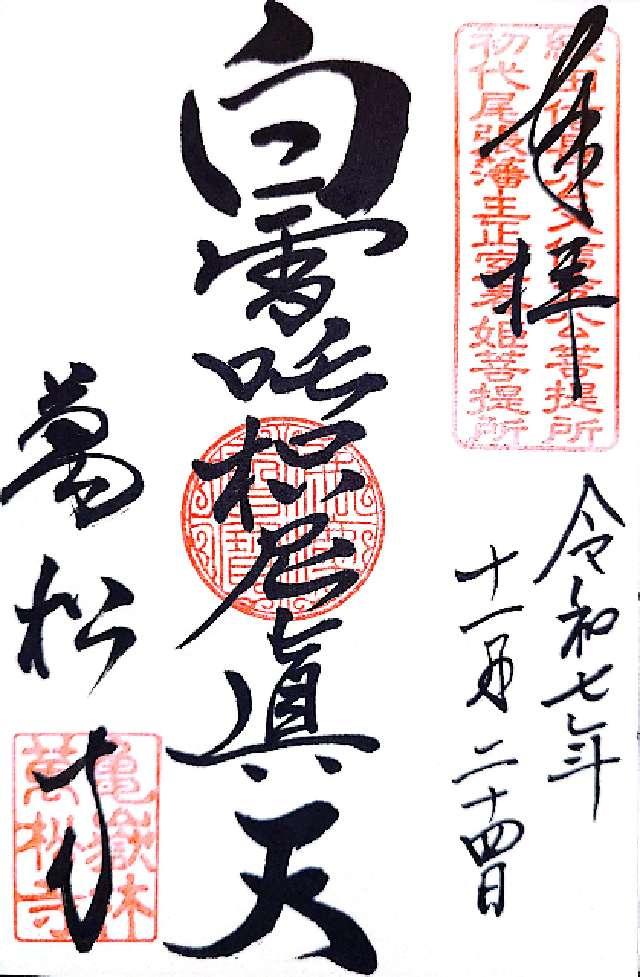 奉拝
織田信長公父信秀公菩提所
初代尾張藩主正室春姫菩提所
令和七年
十一月二十四日
白雪吒枳尼眞天
萬松寺
龜嶽林
萬松寺